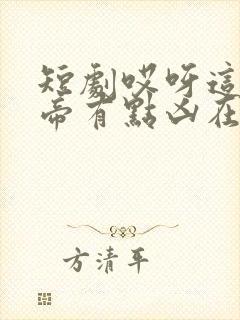 短劇哎呀這
帝有點凶在
方清平